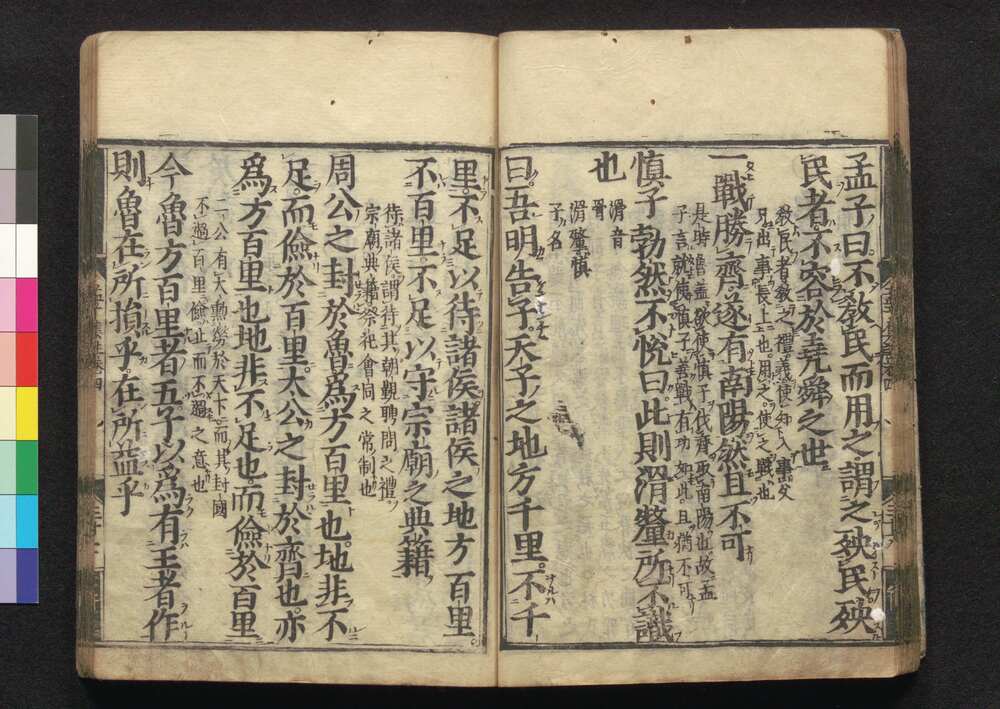 孟子曰不教民而用之謂之殃民殃
民者不容於堯舜之世
教民者教之禮義使知入事父
兄出事長上也用之使之戰也
一戰勝齊遂有南陽然且不可
是時魯蓋欲使慎子伐齊取南陽也故孟
子言就使慎子善戰有功如此且猶不可
慎子勃然不悅曰此則滑釐所不識
也
滑音
骨
滑釐慎
子名
曰吾明告子天子之地方千里不千
里不足以待諸侯諸侯之地方百里
不百里不足以守宗廟之典籍
待諸侯謂待其朝覲聘問之禮
宗廟典籍祭祀會同之常制也
周公之封於魯為方百里也地非不
足而儉於百里太公之封於齊也亦
為方百里也地非不足也而儉於百里
二公有大勳勞於天下而其封國
不過百里儉止而不過之意也
今魯方百里者五子以為有王者作
則魯在所損乎在所益乎